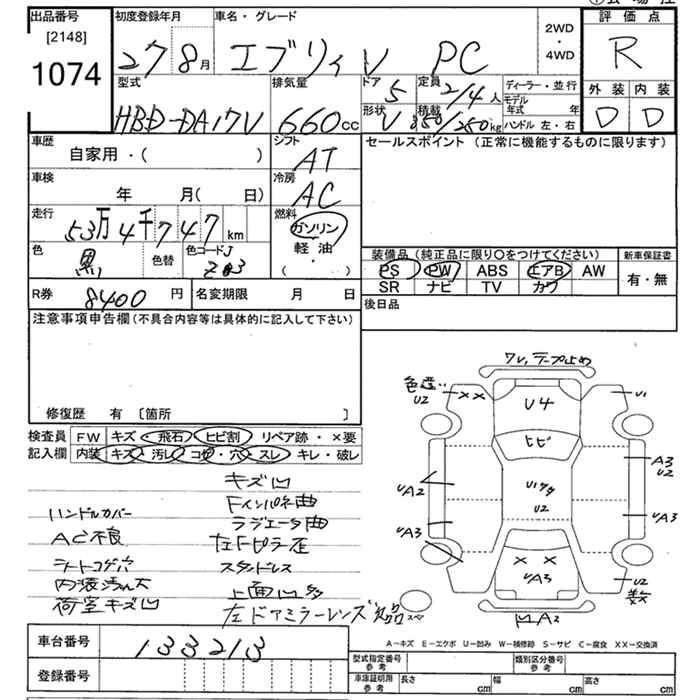 出品番号 初度登録年月 車名・グレード 評価点
[2148]
1074
27 8月 エブリィ V PC 2WD・4WD R
型式 排気量 ドア 定員 ディーラー・並行 外装 内装
HBD-DA17V 660cc 5 2/4人 モデル年式 年 D D
形状 V 積載 350/250kg ハンドル 左・右
車歴 シフト セールスポイント (正常に機能するものに限ります)
自家用・( ) AT
車検 冷房
年 月( 日) AC
走行 燃料
53万4千747km ガソリン
軽油
( ・ )
色 黒 色替 色コードNo Z03
装備品 (純正品に限り〇をつけてください) 新車保証書
PS PW ABS エアB AW 有・無
SR ナビ TV カワ
R券 8400円 名変期限 月 日 後日品
注意事項申告欄 (不具合内容等は具体的に記入して下さい)
修復歴 有 〔箇所 〕
検査員 FW キズ・飛石・ヒビ割 リペア跡・×要
記入欄 内装 キズ・汚レ・コゲ・穴・スレ・キレ・破レ
キズ凹
ハンドルカバー Fインパネ曲
AC不良 ラジエータ曲
シートコゲ穴 左Fピラ歪
スタンドレス
荷室キズ凹 上面凹多
左ドアミラーレンズ
色違い
U2
XX
U1
U4
ヒビ
U2
UA2
A3
U2
UA3
UA3
XX
UA3
U2
数
A2
スペ
車台番号 133213
登録番号
A-キズ E-エクボ U-凹み W-補修跡 S-サビ C-腐食 XX-交換済
型式指定番号 参考 類別区分番号 参考
車庫証明用 参考 長さ cm 幅 cm 高さ cm